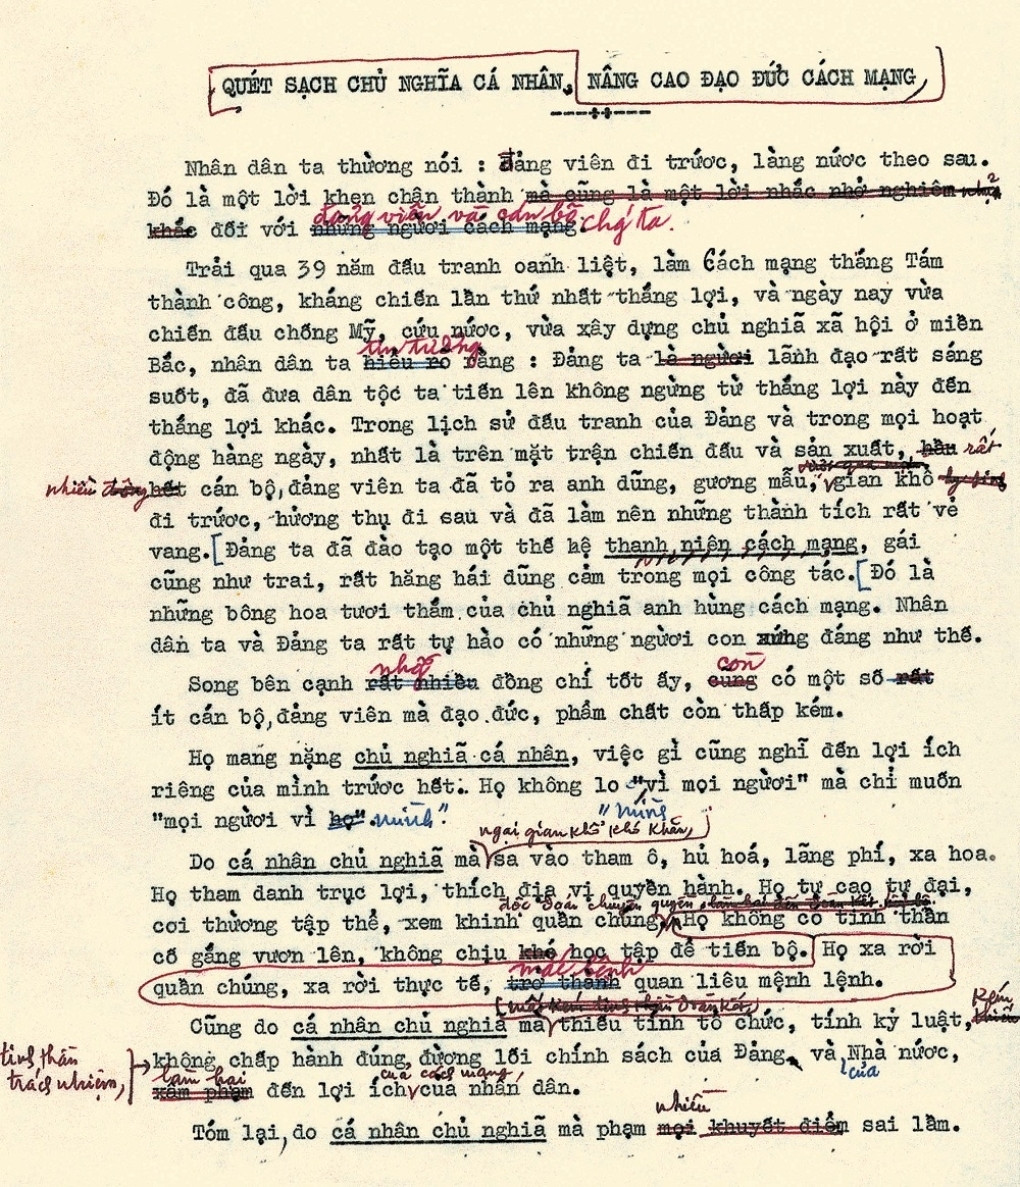 QUÉT SẠCH CHỦ NGHĨA CÁ NHÂN, NÂNG CAO ĐẠO ĐỨC CÁCH MẠNG
Nhân dân ta thường nói : Đảng viên đi trước, làng nước theo sau.
Đó là một lời khen chân thành mà cũng là một lời nhắc nhở nghiêm
đảng viên và cán bộ
khắc đối với những người cách mạng. chúng ta.
Trải qua 39 năm đấu tranh oanh liệt, làm Cách mạng tháng Tám
thành công, kháng chiến lần thứ nhất thắng lợi, và ngày nay vừa
chiến đấu chống Mỹ, cứu nước, vừa xây dựng chủ nghiã xã hội ở miền
tin tưởng
Bắc, nhân dân ta hiểu rõ rằng : Đảng ta là người lãnh đạo rất sáng
suốt, đã đưa dân tộc ta tiến lên không ngừng từ thắng lợi này đến
thắng lợi khác. Trong lịch sử đấu tranh của Đảng và trong mọi hoạt
động hàng ngày, nhất là trên mặt trận chiến đấu và sản xuất, hầu rất
nhiều hết cán bộ, đảng viên ta đã tỏ ra anh dũng, gương mẫu, gian khổ
đi trước, hưởng thụ đi sau và đã làm nên những thành tích rất vẻ
vang. [Đảng ta đã đào tạo một thế hệ thanh niên cách mạng, gái
cũng như trai, rất hăng hái dũng cảm trong mọi công tác. [Đó là
những bông hoa tươi thắm của chủ nghiã anh hùng cách mạng. Nhân
dân ta và Đảng ta rất tự hào có những người con xứng đáng như thế.
những còn
Song bên cạnh rất nhiều đồng chí tốt ấy, cũng có một số rất
ít cán bộ, đảng viên mà đạo đức, phẩm chất còn thấp kém.
Họ mang nặng chủ nghiã cá nhân, việc gì cũng nghĩ đến lợi ích
riêng của mình trước hết. Họ không lo "vì mọi người" mà chỉ muốn
"mọi người vì họ". mình". "mình
ngại gian khổ khó khăn,
Do cá nhân chủ nghiã mà sa vào tham ô, hủ hoá, lãng phí, xa hoa.
Họ tham danh trục lợi, thích địa vị quyền hành. Họ tự cao tự đại,
độc đoán chuyên quyền,
coi thường tập thể, xem khinh quần chúng, Họ không có tinh thần
cố gắng vươn lên, không chịu khó học tập để tiến bộ. Họ xa rời
mắc bệnh
quần chúng, xa rời thực tế, trở thành quan liêu mệnh lệnh.
Cũng do cá nhân chủ nghiã mà thiếu tính tổ chức, tính kỷ luật, kém
tinh thần
trách nhiệm,
không chấp hành đúng đường lối chính sách của Đảng và Nhà nước,
của
làm hại của cách mạng,
xâm phạm đến lợi ích của nhân dân.
nhiều
Tóm lại, do cá nhân chủ nghiã mà phạm mọi khuyết điểm sai lầm.